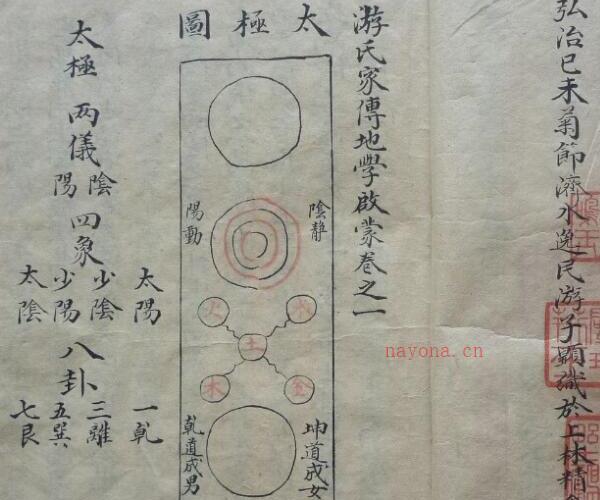 弘治己未菊節濟水逸民游子顯識於上林精
游氏家傳地學啟蒙卷之一
太極圖
陰静
陽動
水
火
土
金
木
坤道成女
乾道成男
太極 兩儀 陰 陽 四象 太陽 少陰 少陽 太陰 八卦 一乾 三離 五巽 七艮
nayona.cn